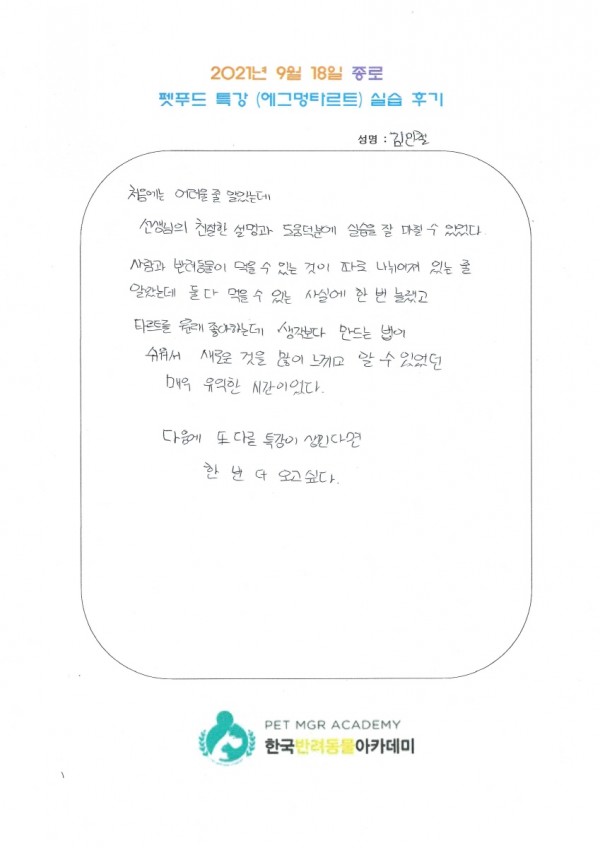 2021년 9월 18일 종로
펫푸드 특강 (에그멍타르트) 실습 후기
성명 : 김민철
처음에는 어려울 줄 알았는데
선생님의 친절한 설명과 도움덕분에 실습을 잘 마칠 수 있었다.
사람과 반려동물이 먹을 수 있는 것이 따로 나뉘어져 있는 줄
알았는데 둘 다 먹을 수 있는 사실에 한 번 놀랬고
타르트를 원래 좋아하는데 생각보다 만드는 법이
쉬워서 새로운 것을 많이 느끼고 알 수 있었던
매우 유익한 시간이었다.
다음에 또 다른 특강이 생긴다면
한 번 더 오고싶다.
PET MGR ACADEMY
한국반려동물아카데미